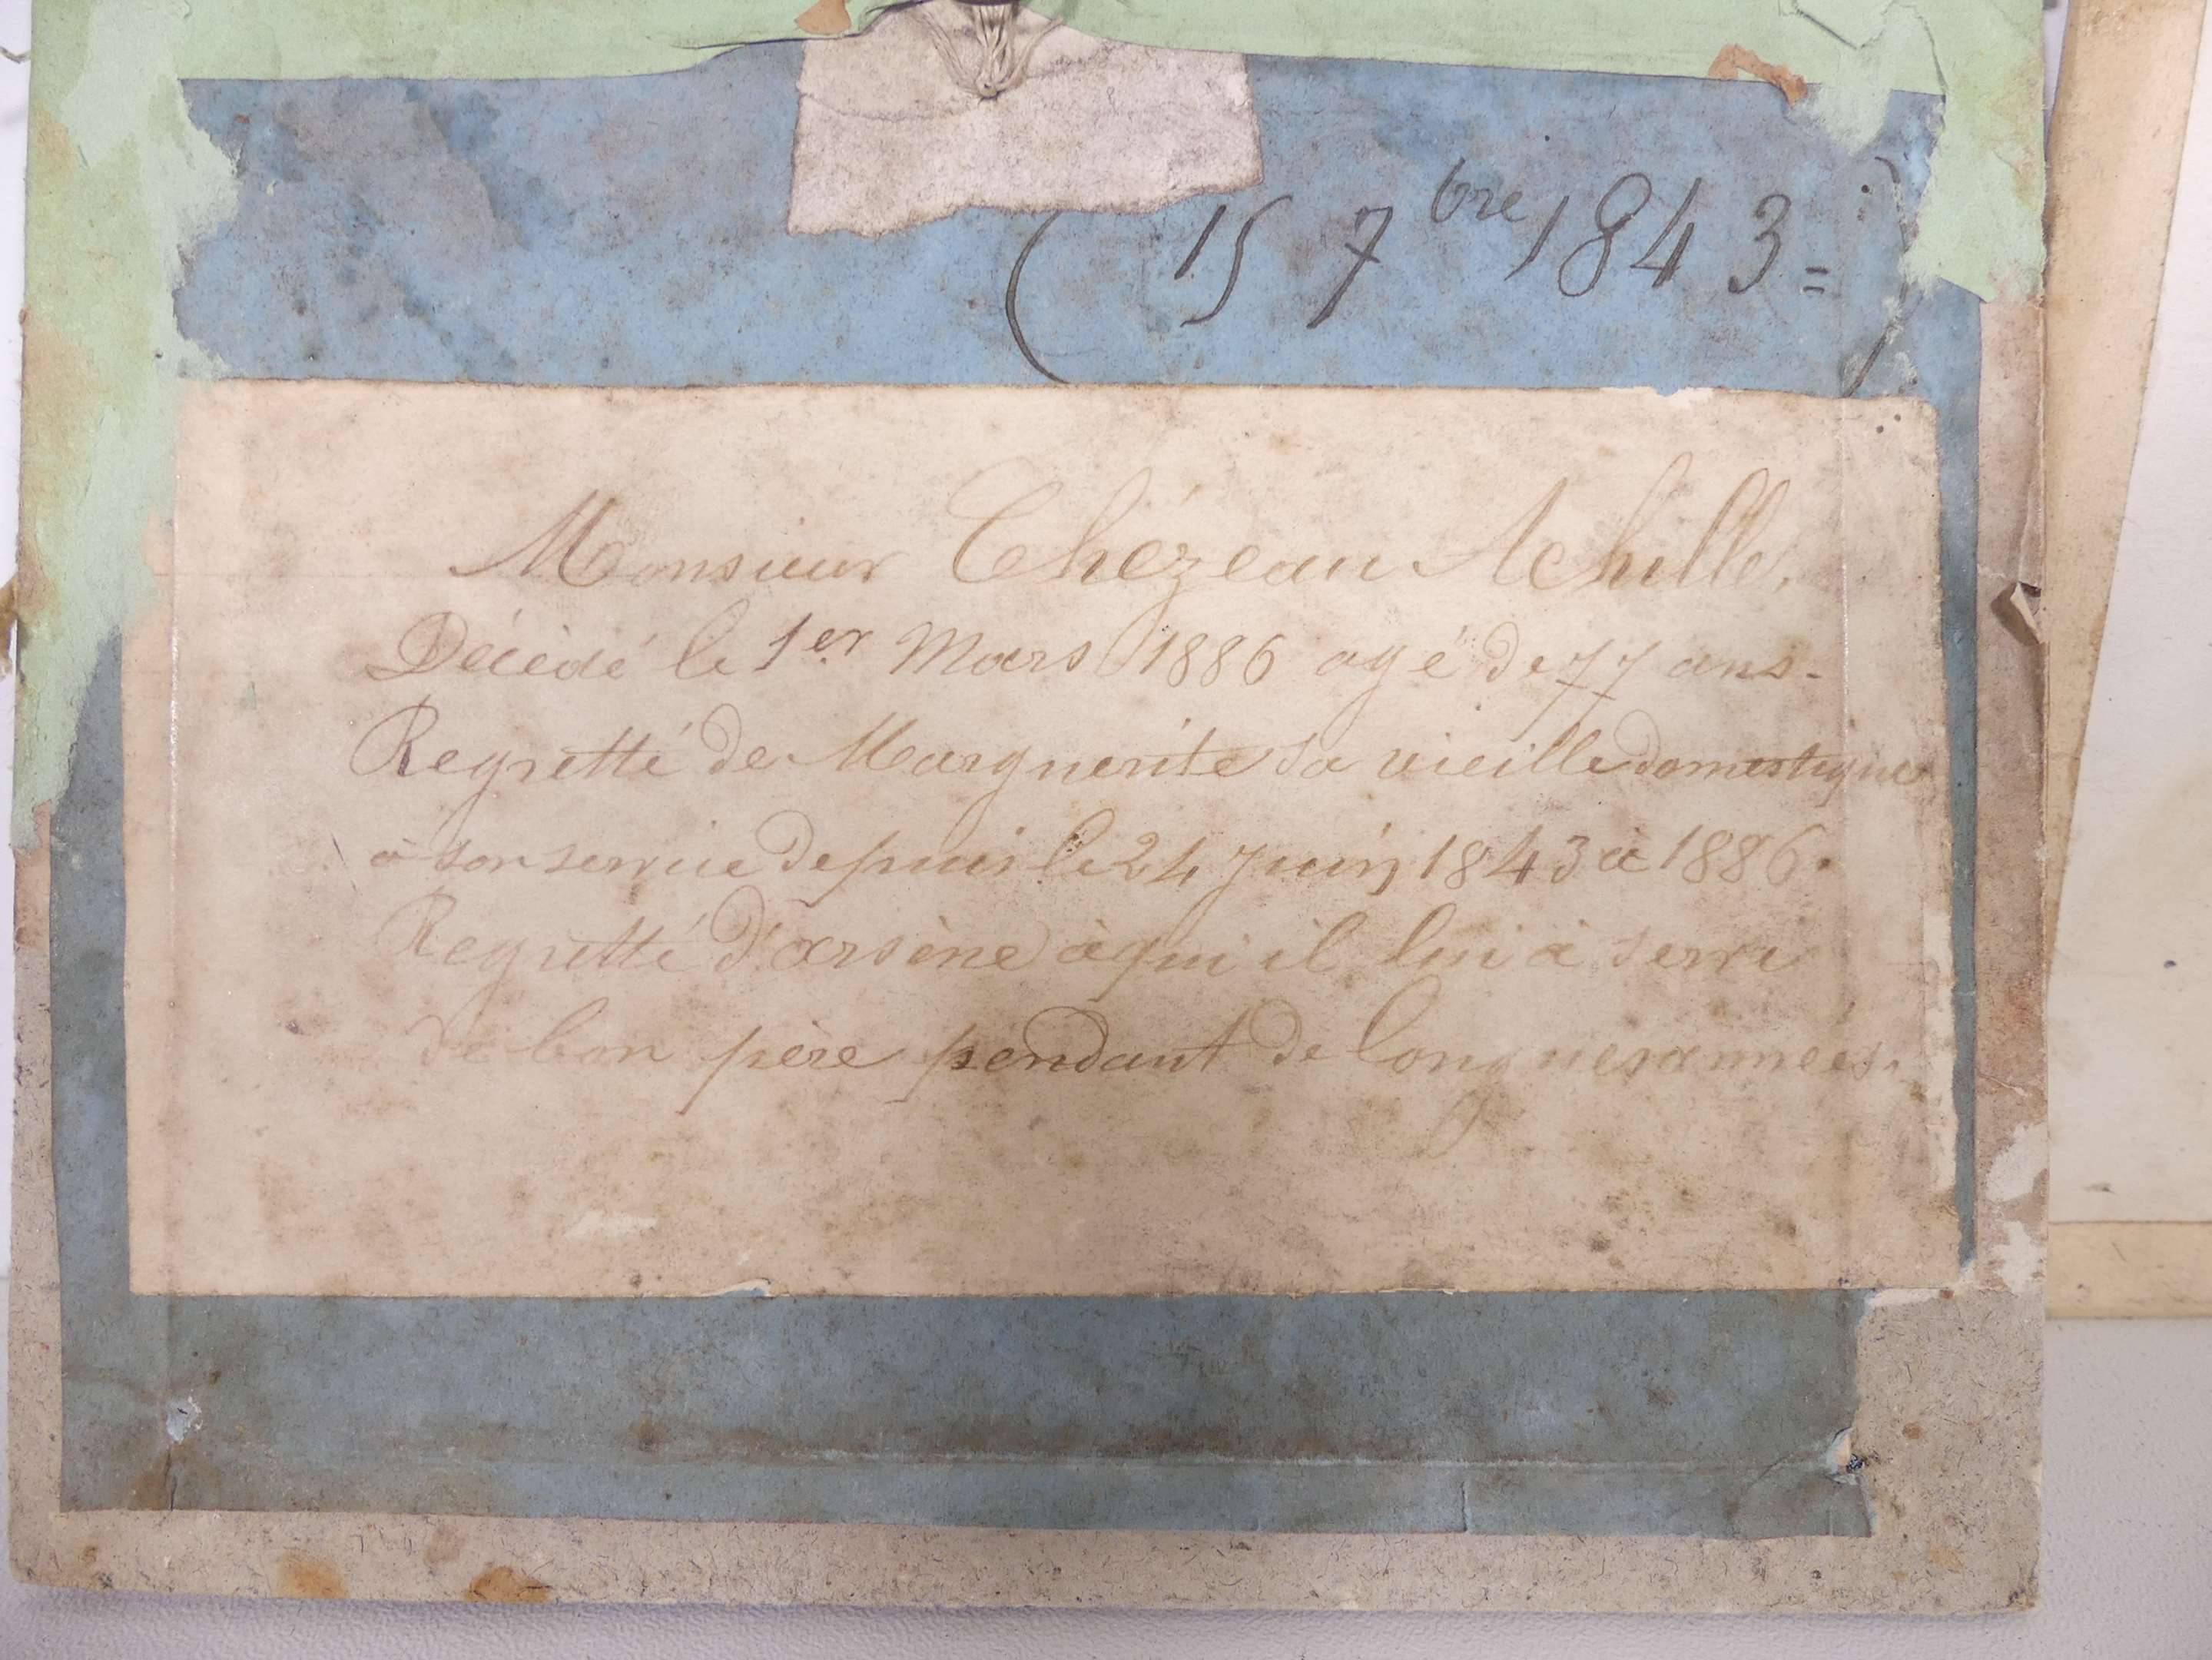 ( 15 7bre 1843 = )
Monsieur Chézeau Achille.
Décédé le 1er Mars 1886 agé de 77 ans.
Regretté de Marguerite sa vieille domestique
à son service depuis le 24 Juin 1843 à 1886.
Regretté d'arsène à qui il lui à servi
de bon père pendant de longues années.